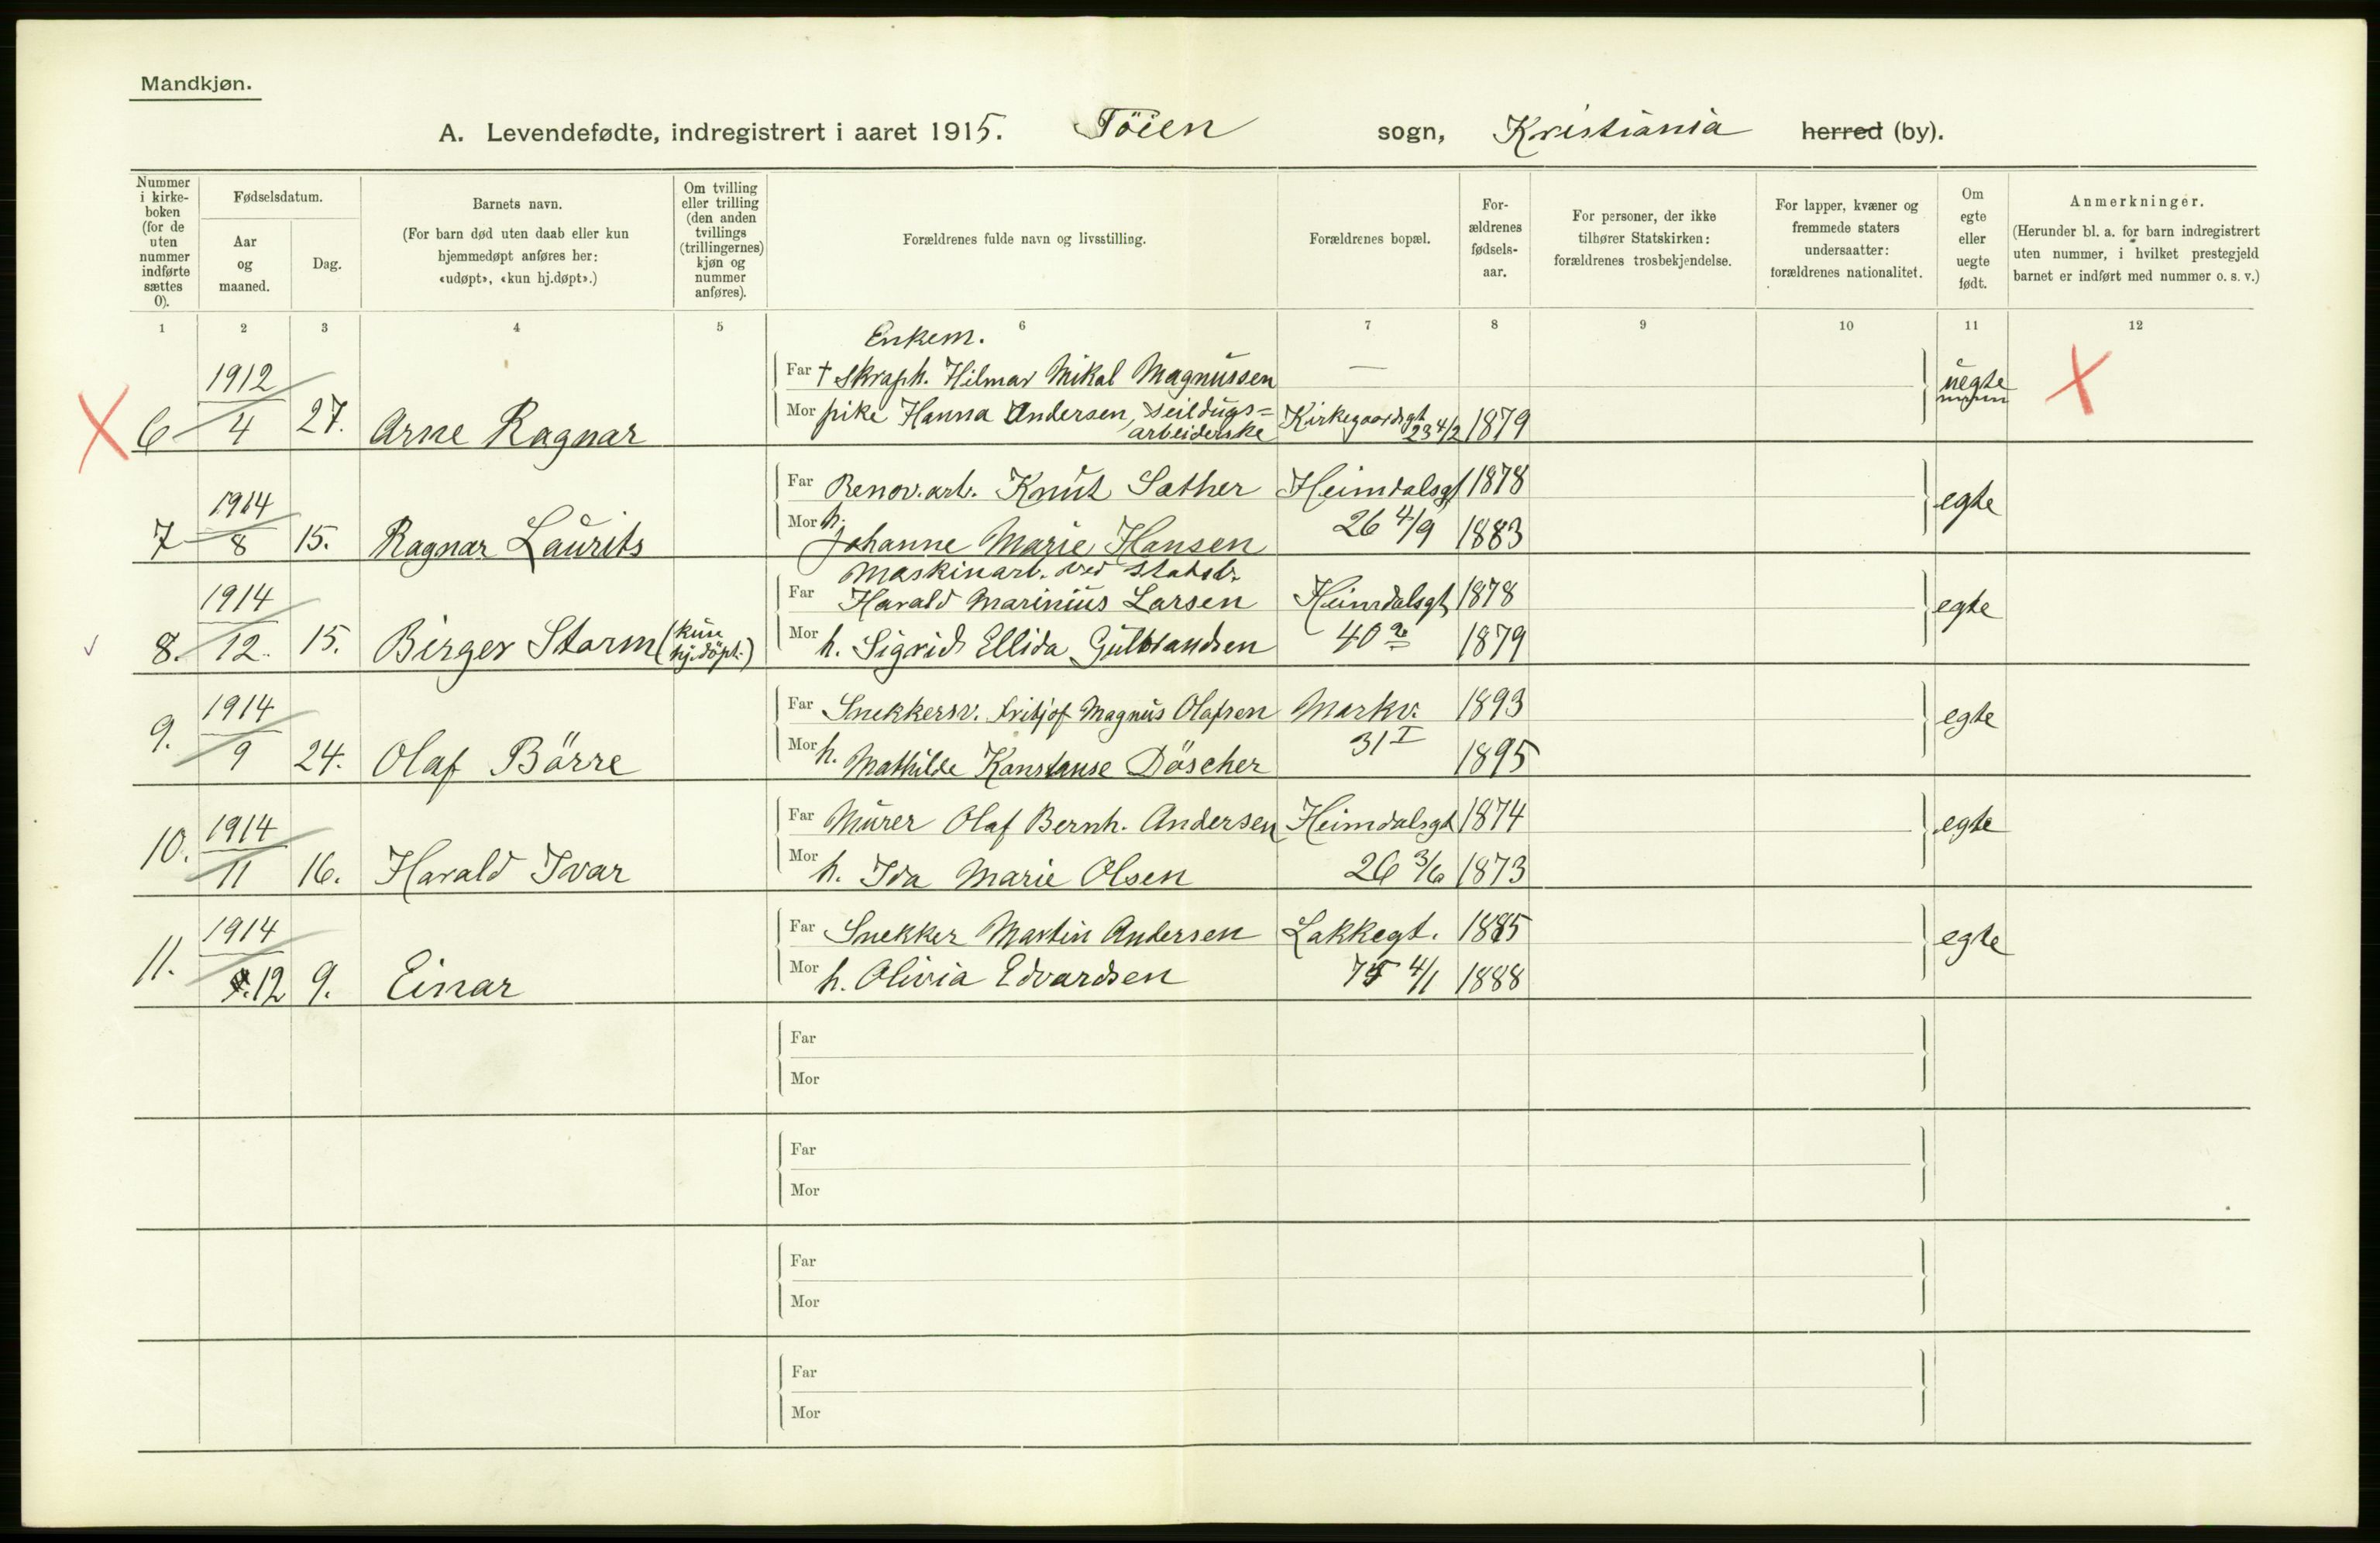 Mandkjøn.
A. Levendefødte, indregistrert i aaret 1915. Töien sogn, Kristiania herred (by).
Nummer i kirke-boken (for de uten nummer indførte sættes 0).
Fødselsdatum.
Aar og maaned.
Dag.
Barnets navn.
(For barn død uten daab eller kun hjemmedøpt anføres her: «udøpt», «kun hj.døpt».)
Om tvilling eller trilling (den anden tvillings (trillingernes) kjøn og nummer anføres).
Forældrenes fulde navn og livsstilling.
Forældrenes bopæl.
For-ældrenes fødsels-aar.
For personer, der ikke tilhører Statskirken: forældrenes trosbekjendelse.
For lapper, kvæner og fremmede staters undersaatter: forældrenes nationalitet.
Om egte eller uegte født.
Anmerkninger.
(Herunder bl. a. for barn indregistrert uten nummer, i hvilket prestegjeld barnet er indført med nummer o. s. v.)
1 2 3 4 5 6 7 8 9 10 11 12
Enkem.
X 6 1912 4 27. Arne Ragnar
Far † Skraph. Hilmar Mikal Magnussen —
Mor pike Hanna Andersen, seildugs=
arbeiderske Kirkegaardsgt 23 4/2 1879 uegte X
7 1914 8 15. Ragnar Laurits
Far Renov.arb. Knut Sather Heimdalsgt 1878
Mor h. Johanne Marie Hansen 26 4/9 1883 egte
8. 1914 12. 15. Birger Storm (kun hj.döpt.)
Maskinarb. ved Statsb.
Far Harald Marinius Larsen Heimdalsgt 1878
Mor h. Sigrid Ellida Gulbrandsen 40 1879 egte
9. 1914 9 24. Olaf Börre
Far Snekkersv. Fritjof Magnus Olafsen Markv. 1893
Mor h. Mathilde Konstanse Döscher 31 I 1895 egte
10. 1914 11 16. Harald Ivar
Far Murer Olaf Bernh. Andersen Heimdalsgt 1874
Mor h. Ida Marie Olsen 26 3/6 1873 egte
11. 1914 12 9. Einar
Far Snekker Martin Andersen Lakkegt. 1885
Mor h. Olivia Edvardsen 75 4/1 1888 egte
Far
Mor
Far
Mor
Far
Mor
Far
Mor